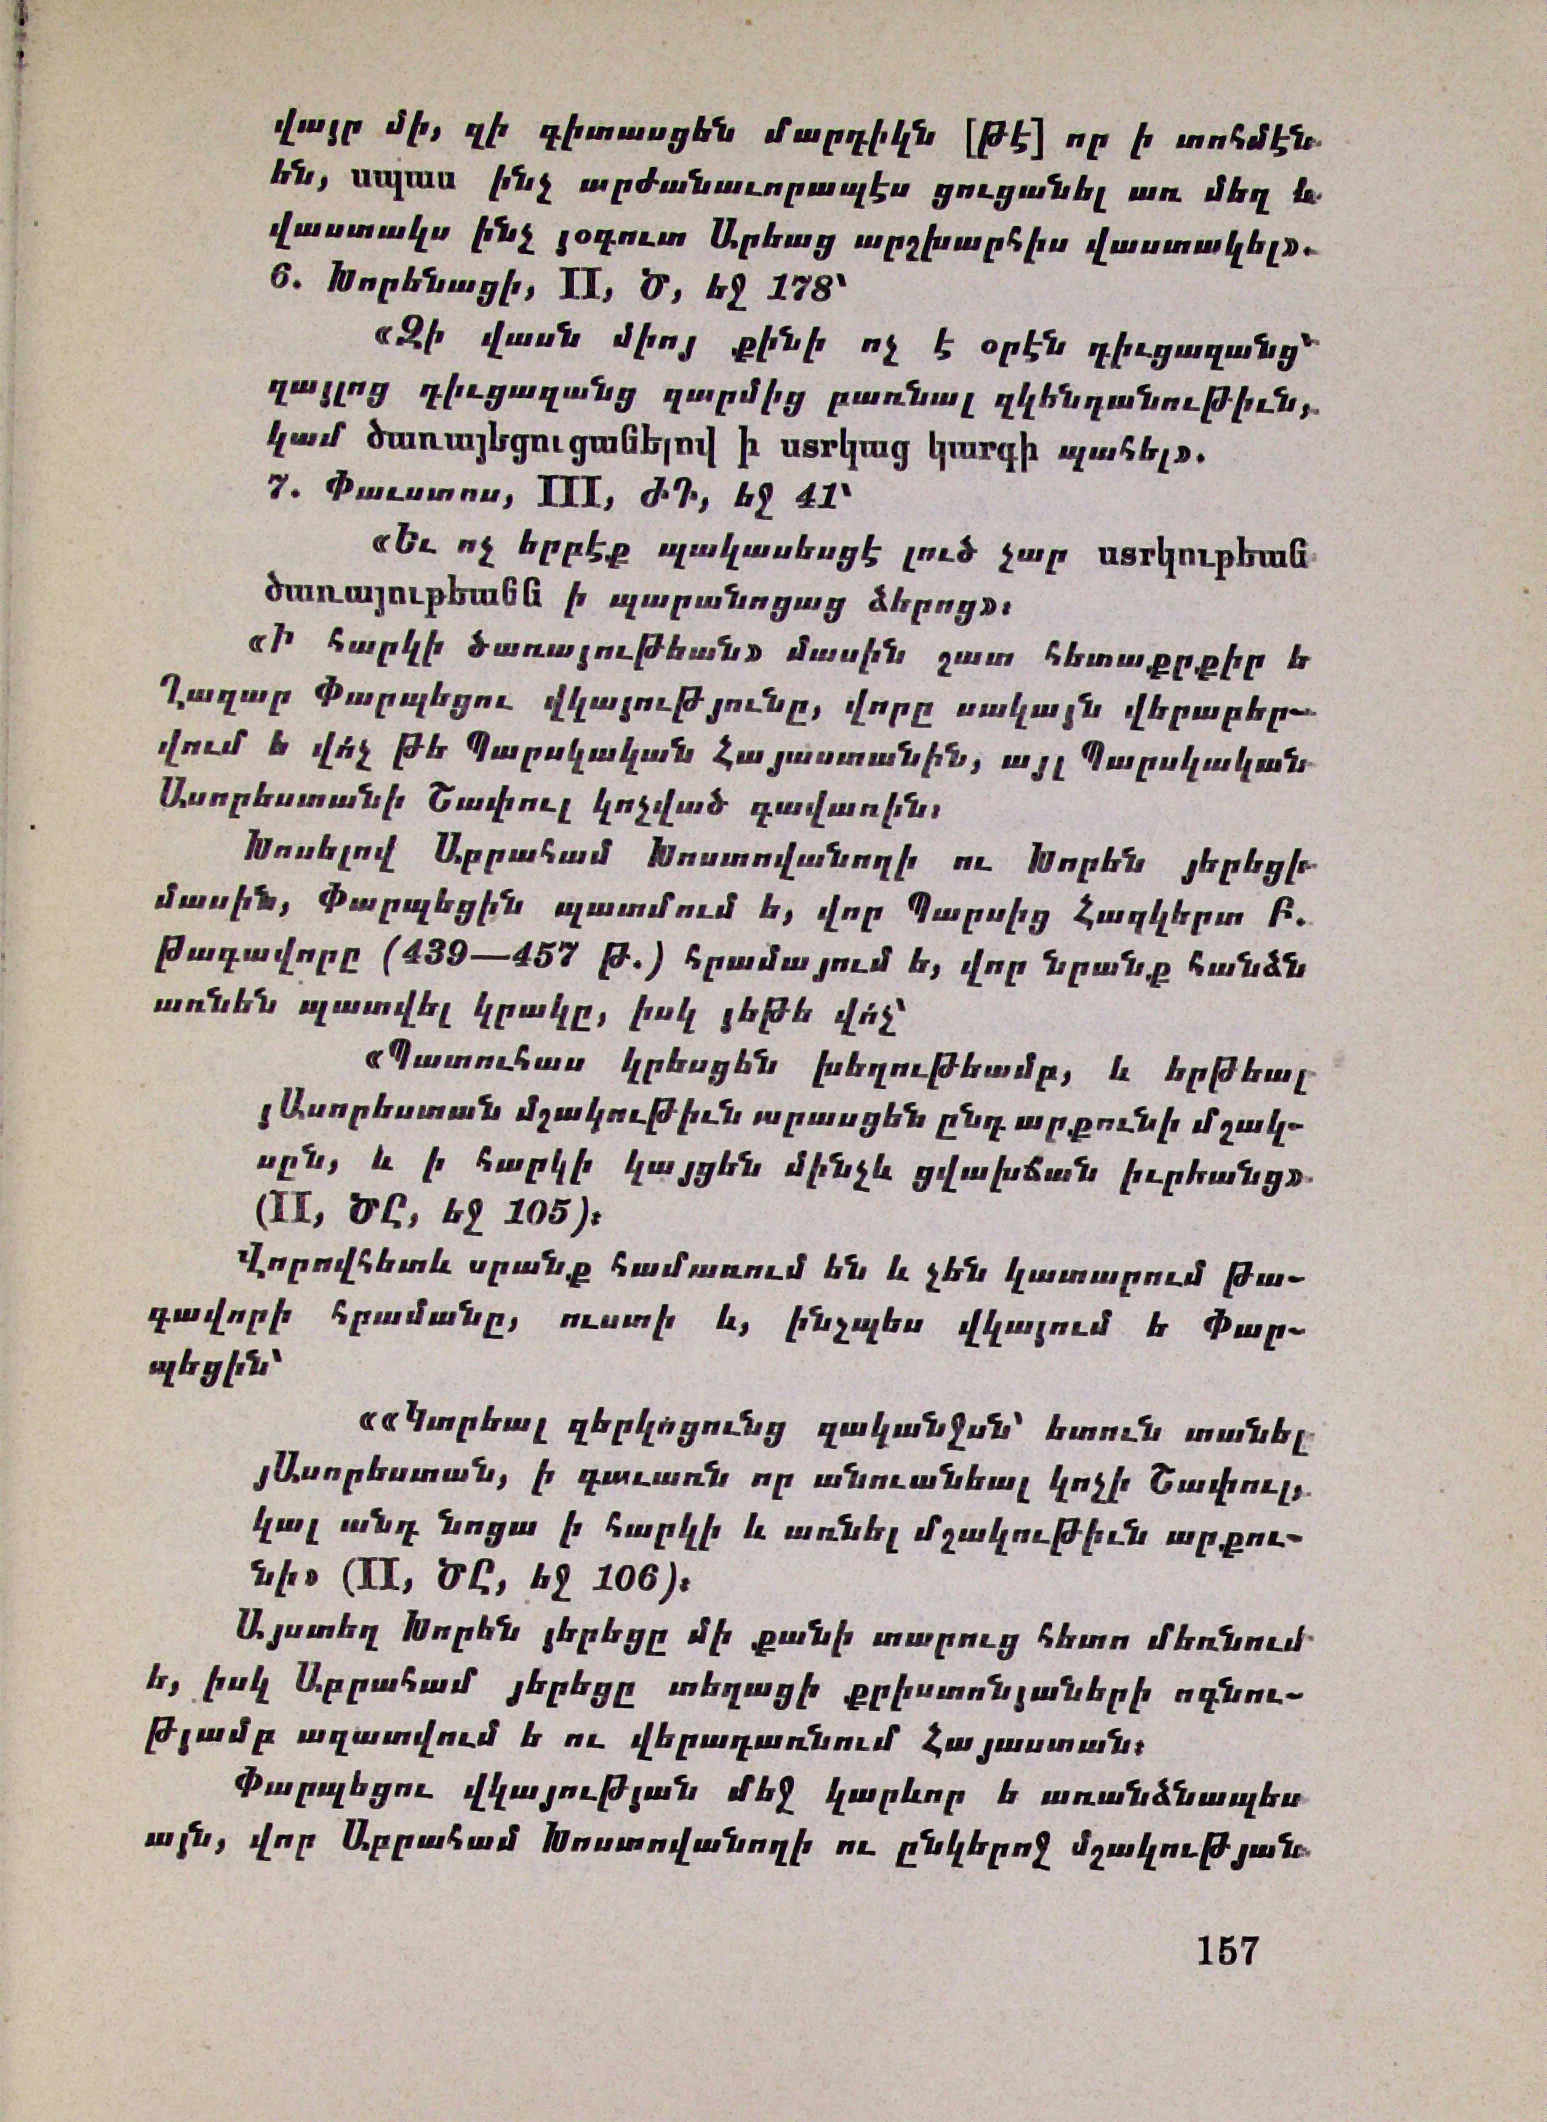 վայր մի, զի գիտասցեն մարդիկն [թէ] որ ի տոհմէն
են, սպաս ինչ արժանաւորապէս ցուցանել առ մեզ և
վաստակս ինչ յօգուտ Արեաց արշխարհիս վաստակել».
6. Խորենացի, II, Ծ, եջ 178՝
«Զի վասն միոյ քինի ոչ է օրէն դիւցազանց՝
զայլոց դիւցազանց զարմից բառնալ զկենդանութիւն,
կամ ծառայեցուցանելով ի ստրկաց կարգի պահել».
7. Փաւստոս, III, ԺԴ, եջ 41՝
«Եւ ոչ երբէք պակասեսցէ լուծ չար ստրկութեան
ծառայութեանն ի պարանոցաց ձերոց»։
«Ի հարկի ծառայութեան» մասին շատ հետաքրքիր ե
Ղազար Փարպեցու վկայությունը, վորը սակայն վերաբեր-
վում ե վո՛չ թե Պարսկական Հայաստանին, այլ Պարսկական
Ասորեստանի Շափուլ կոչված գավառին։
Խոսելով Աբրահամ Խոստովանողի ու Խորեն յերեցի
մասին, Փարպեցին պատմում ե, վոր Պարսից Հազկերտ Բ.
թագավորը (439—457 թ.) հրամայում ե, վոր նրանք հանձն
առնեն պատվել կրակը, իսկ յեթե վո՛չ՝
«Պատուհաս կրեսցեն խեղութեամբ, և երթեալ
յԱսորեստան մշակութիւն արասցեն ընդ արքունի մշակ-
սըն, և ի հարկի կայցեն մինչև ցվախճան իւրեանց»
(II, ԾԸ, եջ 105)։
Վորովհետև սրանք համառում են և չեն կատարում թա-
գավորի հրամանը, ուստի և, ինչպես վկայում ե Փար-
պեցին՝
««Կտրեալ զերկոցունց զականջսն՝ ետուն տանել
յԱսորեստան, ի գաւառն որ անուանեալ կոչի Շափուլ,
կալ անդ նոցա ի հարկի և առնել մշակութիւն արքու-
նի» (II, ԾԸ, եջ 106)։
Այստեղ Խորեն յերեցը մի քանի տարուց հետո մեռնում
ե, իսկ Աբրահամ յերեցը տեղացի քրիստոնյաների ոգնու-
թյամբ ազատվում ե ու վերադառնում Հայաստան։
Փարպեցու վկայության մեջ կարևոր ե առանձնապես
այն, վոր Աբրահամ Խոստովանողի ու ընկերոջ մշակության
157